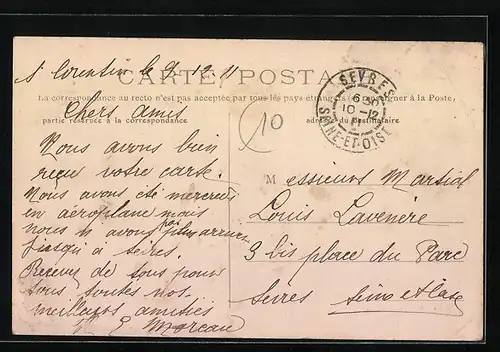 St Corentin le 9-12-11
CARTE POSTALE
La correspondance au recto n'est pas acceptée par tous les pays étrangers (se renseigner à la Poste,
partie réservée à la correspondance
adresse du destinataire
SEVRES
6 30
10-12
11
SEINE-ET-OISE
10
Chers Amis
Nous avons bien
reçu votre carte.
Nous avons été mercredi
en aeroplane mais
nous n'avons pas filer arriver
jusqu'à
Recevez de tous pour
tous toutes nos
meilleures amitiés
Moreau
M essieurs Martial
Louis Lavenère
3 bis place du Parc
Sevres Seine et Oise